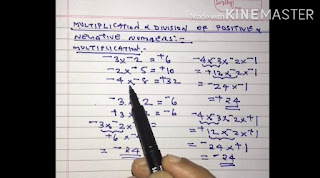 Made with
KINEMASTER
MULTIPLICATION & DIVISION OF POSITIVE &
NEGATIVE NUMBERS:-
MULTIPLICATION:-
⁻3x⁻2 = ⁺6
⁻2x⁻5 = ⁺10
⁻4x⁻8 = ⁺32
⁻3 2 = ⁻6
⁺3 ⁻2 = ⁻6
⁻3x⁻2x
⁺6 x
= ⁻24
⁻4x⁻3x⁻2x⁻1
= ⁺12x⁻2x⁻1
= ⁻24x⁻1
= ⁺24
⁻4x⁻3x⁻2x⁺1
= ⁺12x⁻2x⁺1
= ⁻24x⁺1
= ⁻24